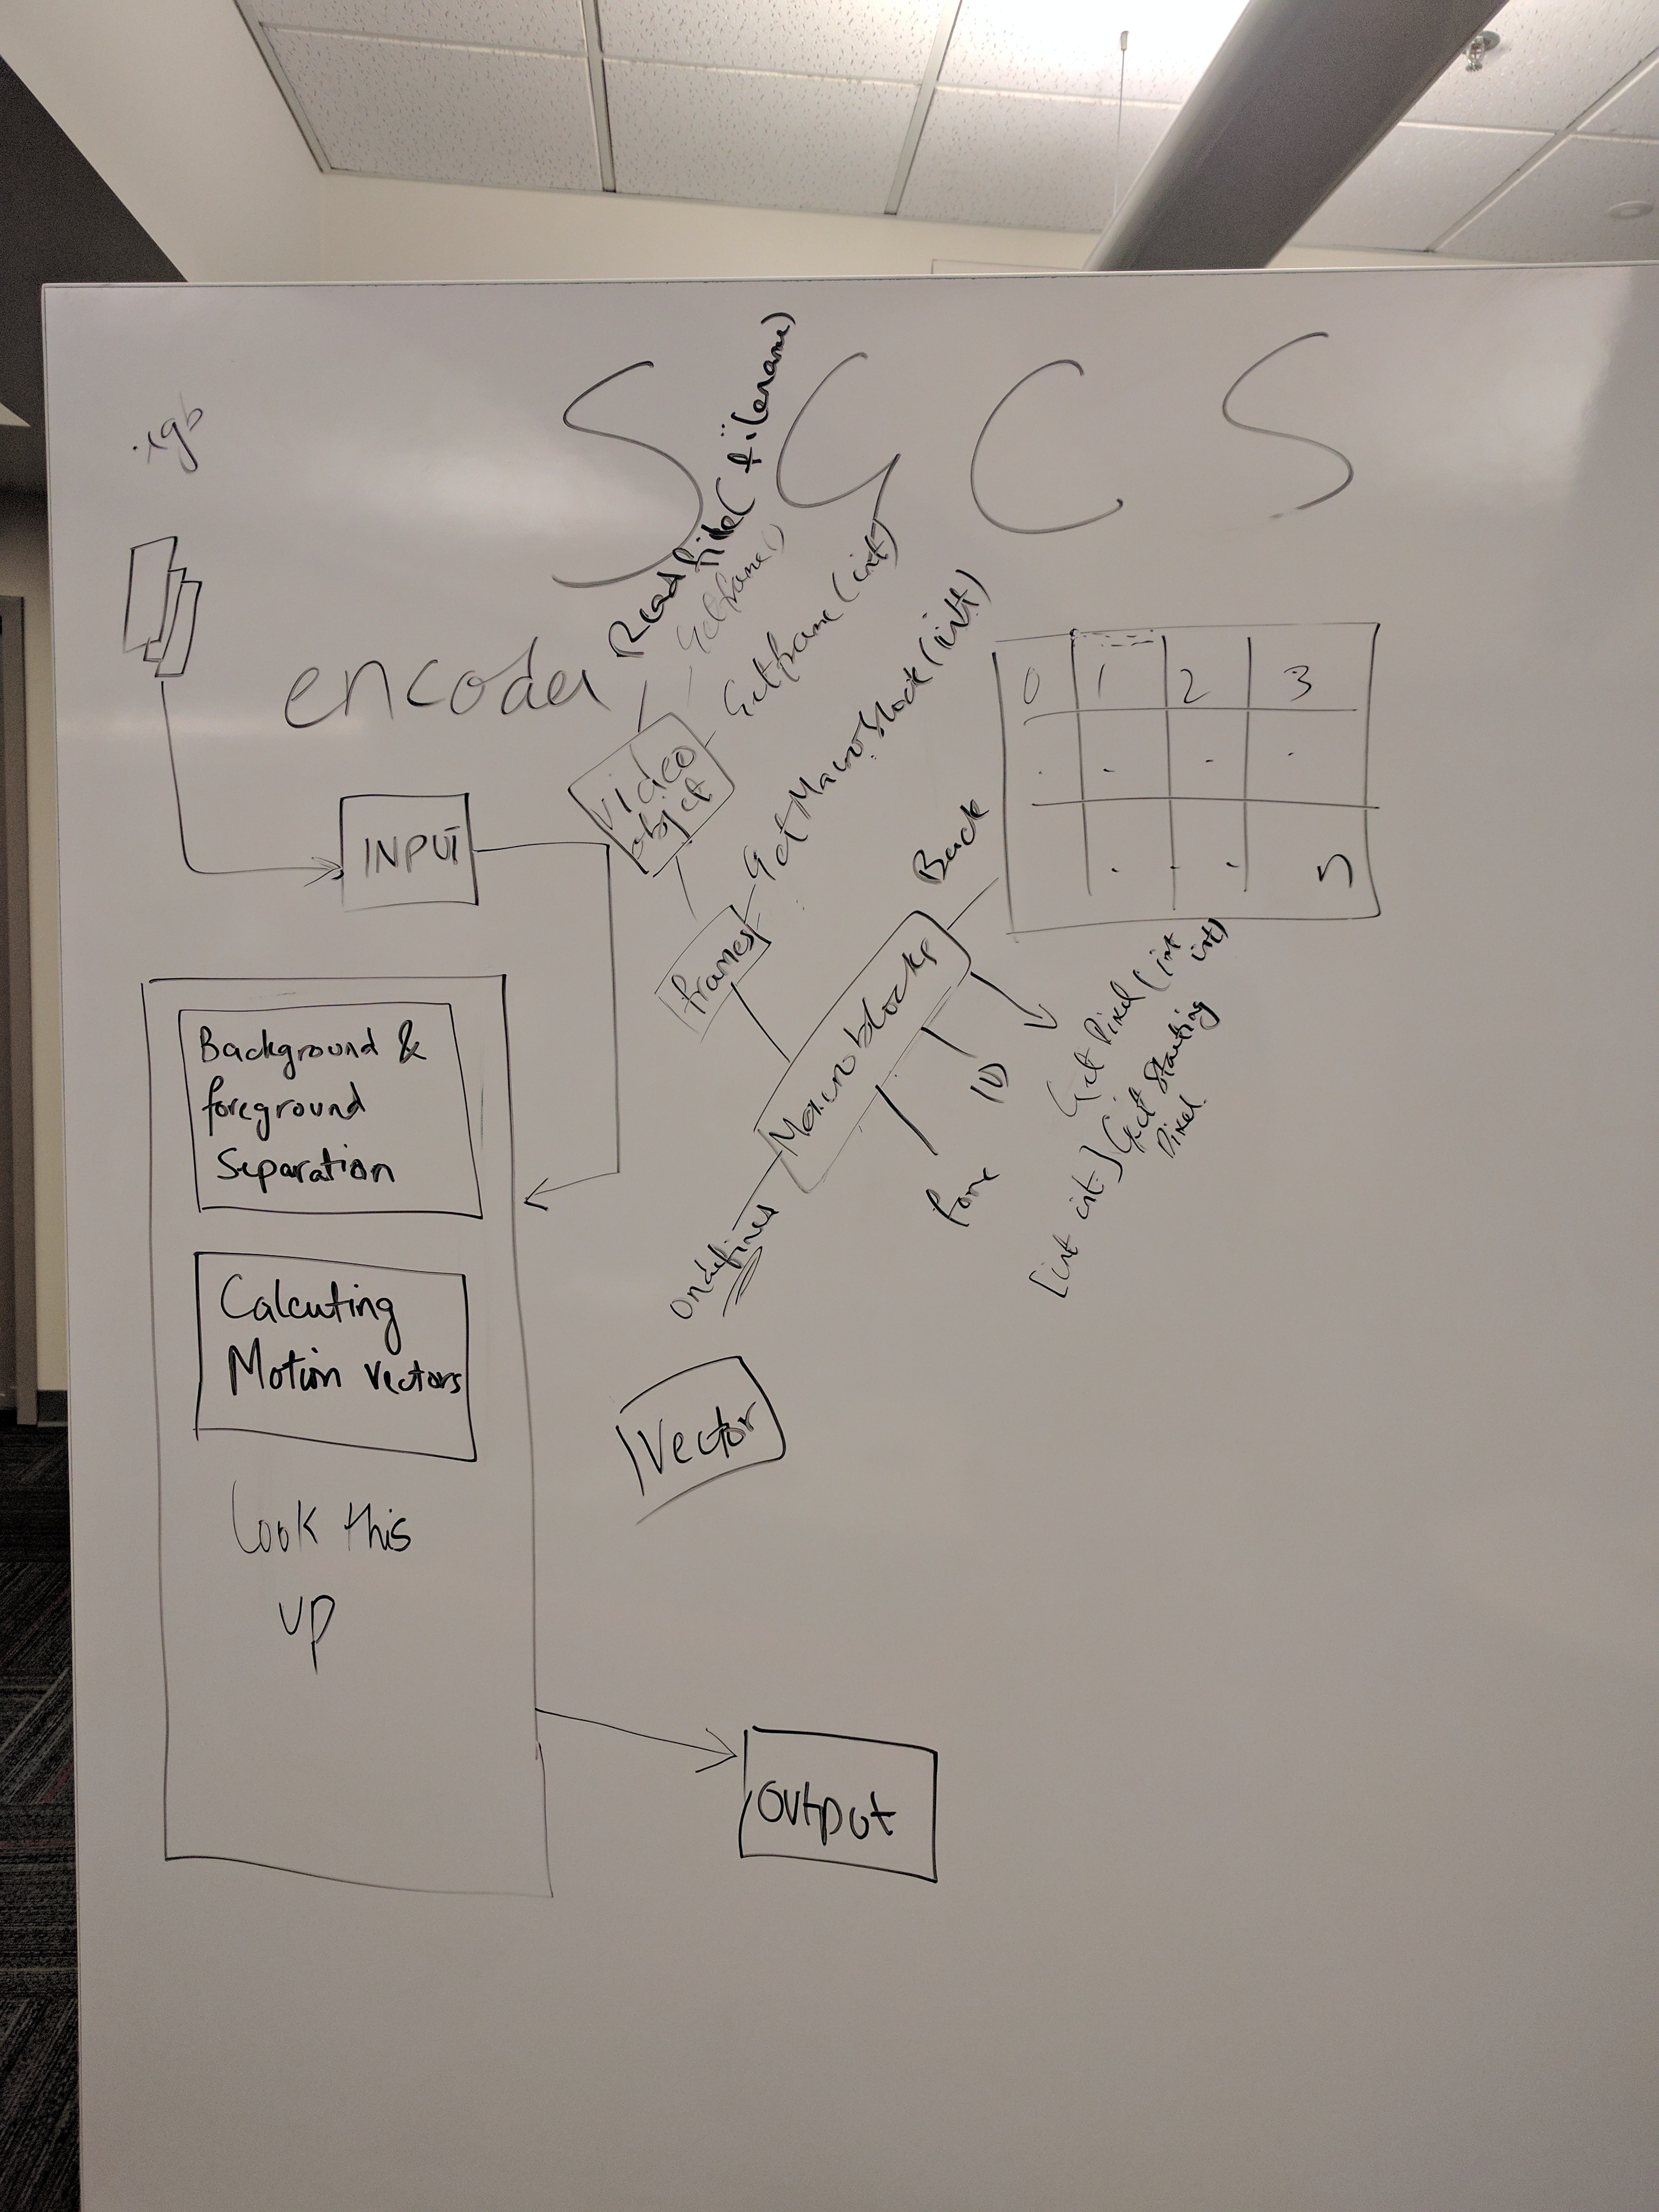 SGCS
.rgb
encoder
Readfile(filename)
Getframe()
Getframe(int)
GetMacroblock(int)
video
object
INPUT
frames
Macroblocks
Back
0 1 2 3
n
Get Pixel (int
int)
[int int] Get Starting
Pixel
ID
fore
Undefined
Background &
foreground
Separation
Calcuting
Motion vectors
look this
up
Vector
Output